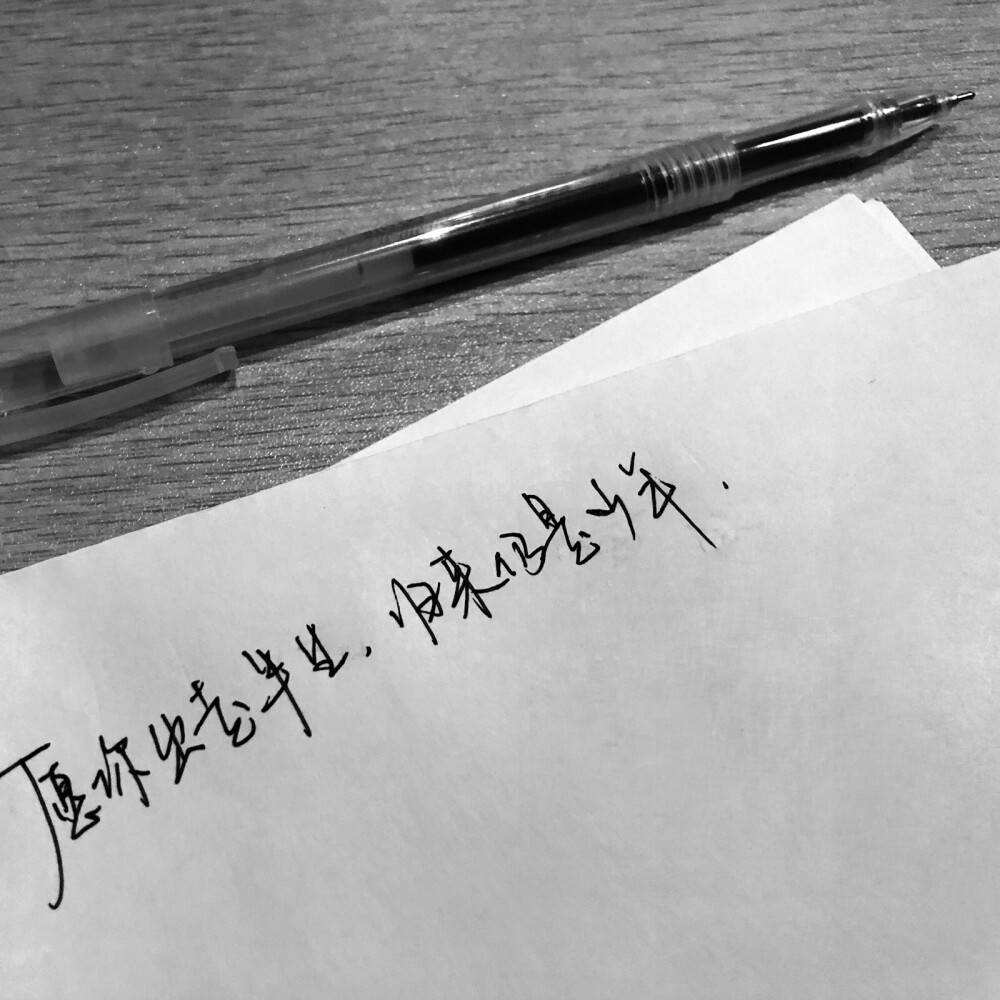 愿你出走半生，归来仍是少年.